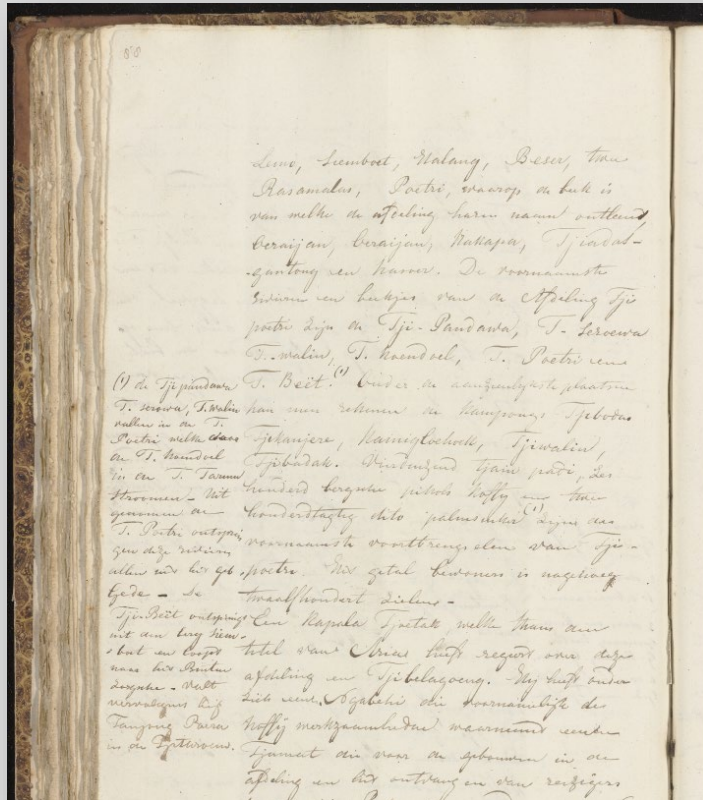 88
Lemo, Lemboet, Malang, Beser, twee
Rasamalas, Poetri, waarop de buk is
van welke de afdeling haren naam ontleend,
beraijan, beraijan, Kakapa, Tjiadal-
gantong en hawer. De voornaamste
rivieren en beekjes van de Afdeling Tji
poetri zijn de Tji-Pandawa, T- Seroewa
T.-walin, T. koendoel, T. Poetri en
T. Beët. (1) Onder de aanzienlijkste plaatsen
kan men rekenen de kampongs Tjibodas
Tjikanjere, Tjiwalin,
Tjibadak. Vierduizend tjain padi, zes
honderd bergsche pikols koffy en twee
honderdtagtig dito palmsuiker (1) zijn de
voornaamste voortbrengselen van Tji-
poetri. Het getal bewoners is nagenoeg
twaalfhonderd zielen.-
Een Kapala Tjoetak welke thans den
titel van Arias heeft regeert over deze
afdeling en Tjibelagoeng. Hij heeft onder
zich eenen Ngabehi die voornamelijk de
koffij werkzaamheden waarneemt eenen
Tjamat die voor de gebouwen in de
afdeling en het ontvangen van reizigers
(1) de Tjipandawa
T. serowa, T. walin
vallen in de T.
Poetri welke door
de T. koendoel
in de T. Tarum
stroomen - Uit
genomen de
T. Poetri ontsprin
gen deze rivieren
allen uit het geb.
Gede - de
Tji-Beët ontspringt
uit den berg Lem-
boet en loopt
naar het Buiten
zorgsche - valt
vervolgens bij
Tanjong Poera
in de Tjitaroem.